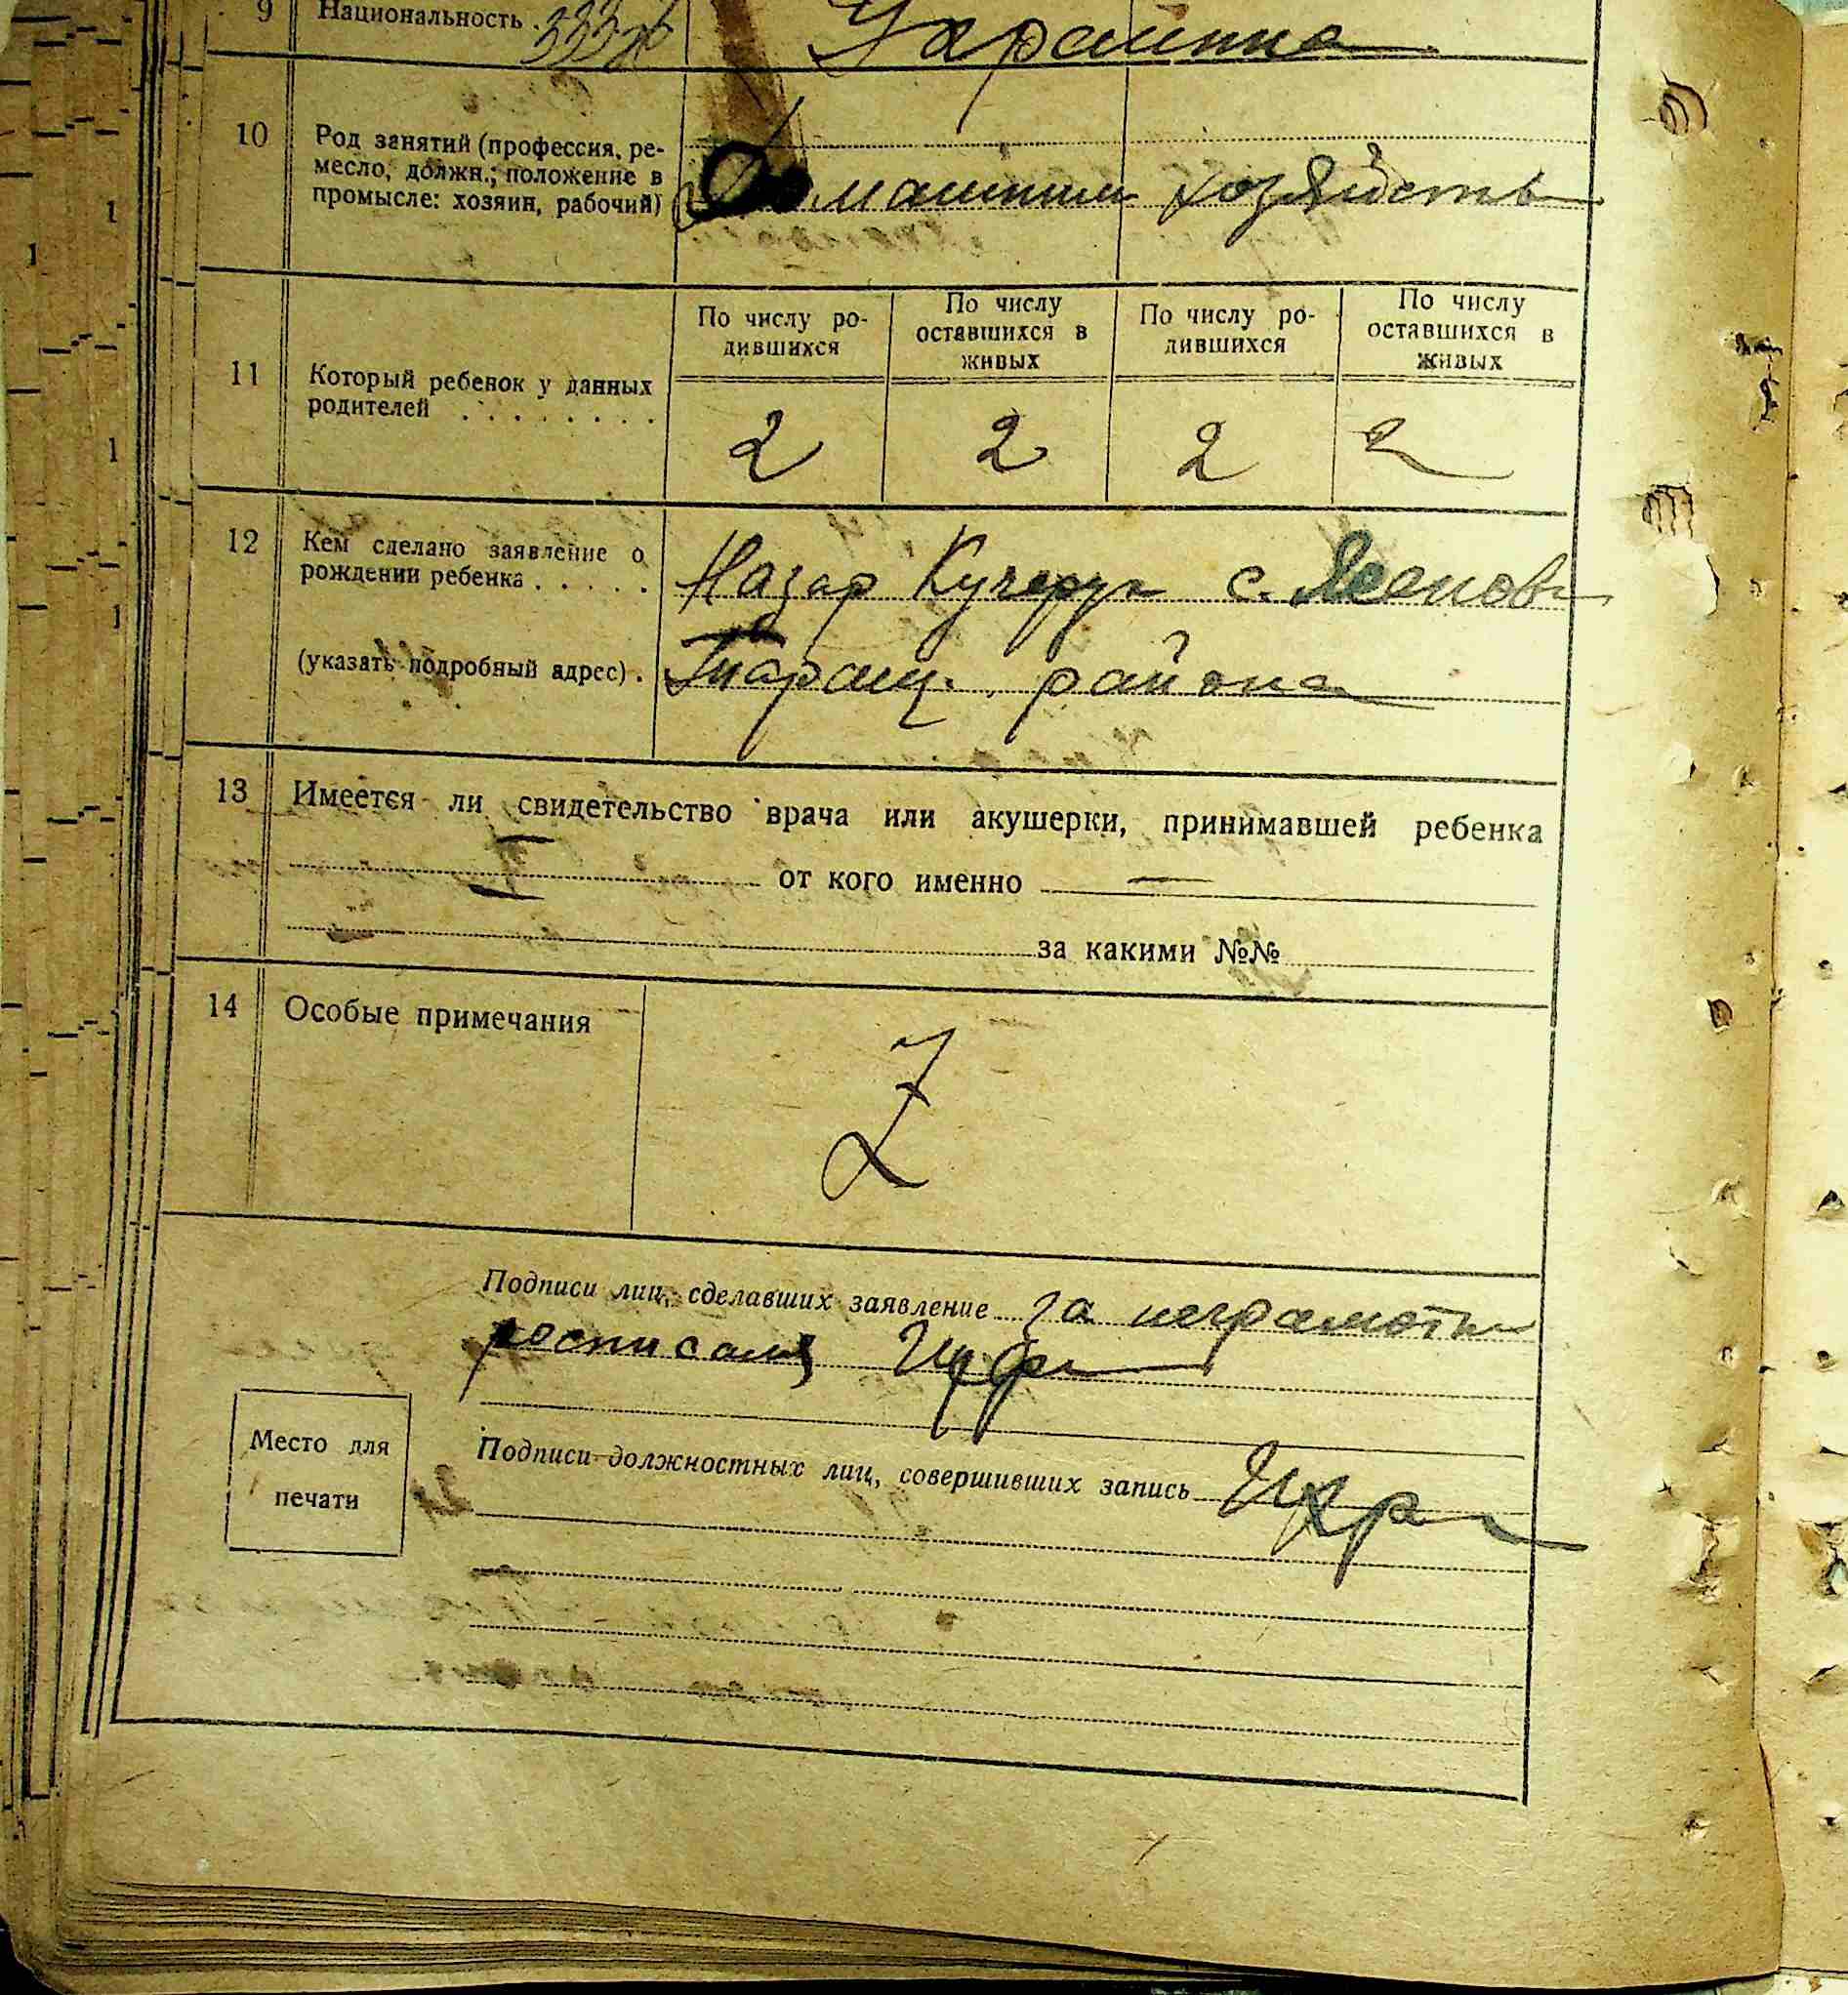 9 Национальность.
10 Род занятий (профессия, ре-
месло, должн.; положение в
промысле: хозяин, рабочий)
хозяйств
11 Который ребенок у данных
родителей . . . . . . . .
По числу ро-
дившихся
По числу
оставшихся в
живых
По числу ро-
дившихся
По числу
оставшихся в
живых
2 2 2 2
12 Кем сделано заявление о
рождении ребенка . . . . .
Назар Кучерук с.
(указать подробный адрес) .
Таращ. района
13 Имеется ли свидетельство врача или акушерки, принимавшей ребенка
— от кого именно —
за какими №№
14 Особые примечания
Z
Подписи лиц, сделавших заявление за
Место для
печати
Подписи должностных лиц, совершивших запись